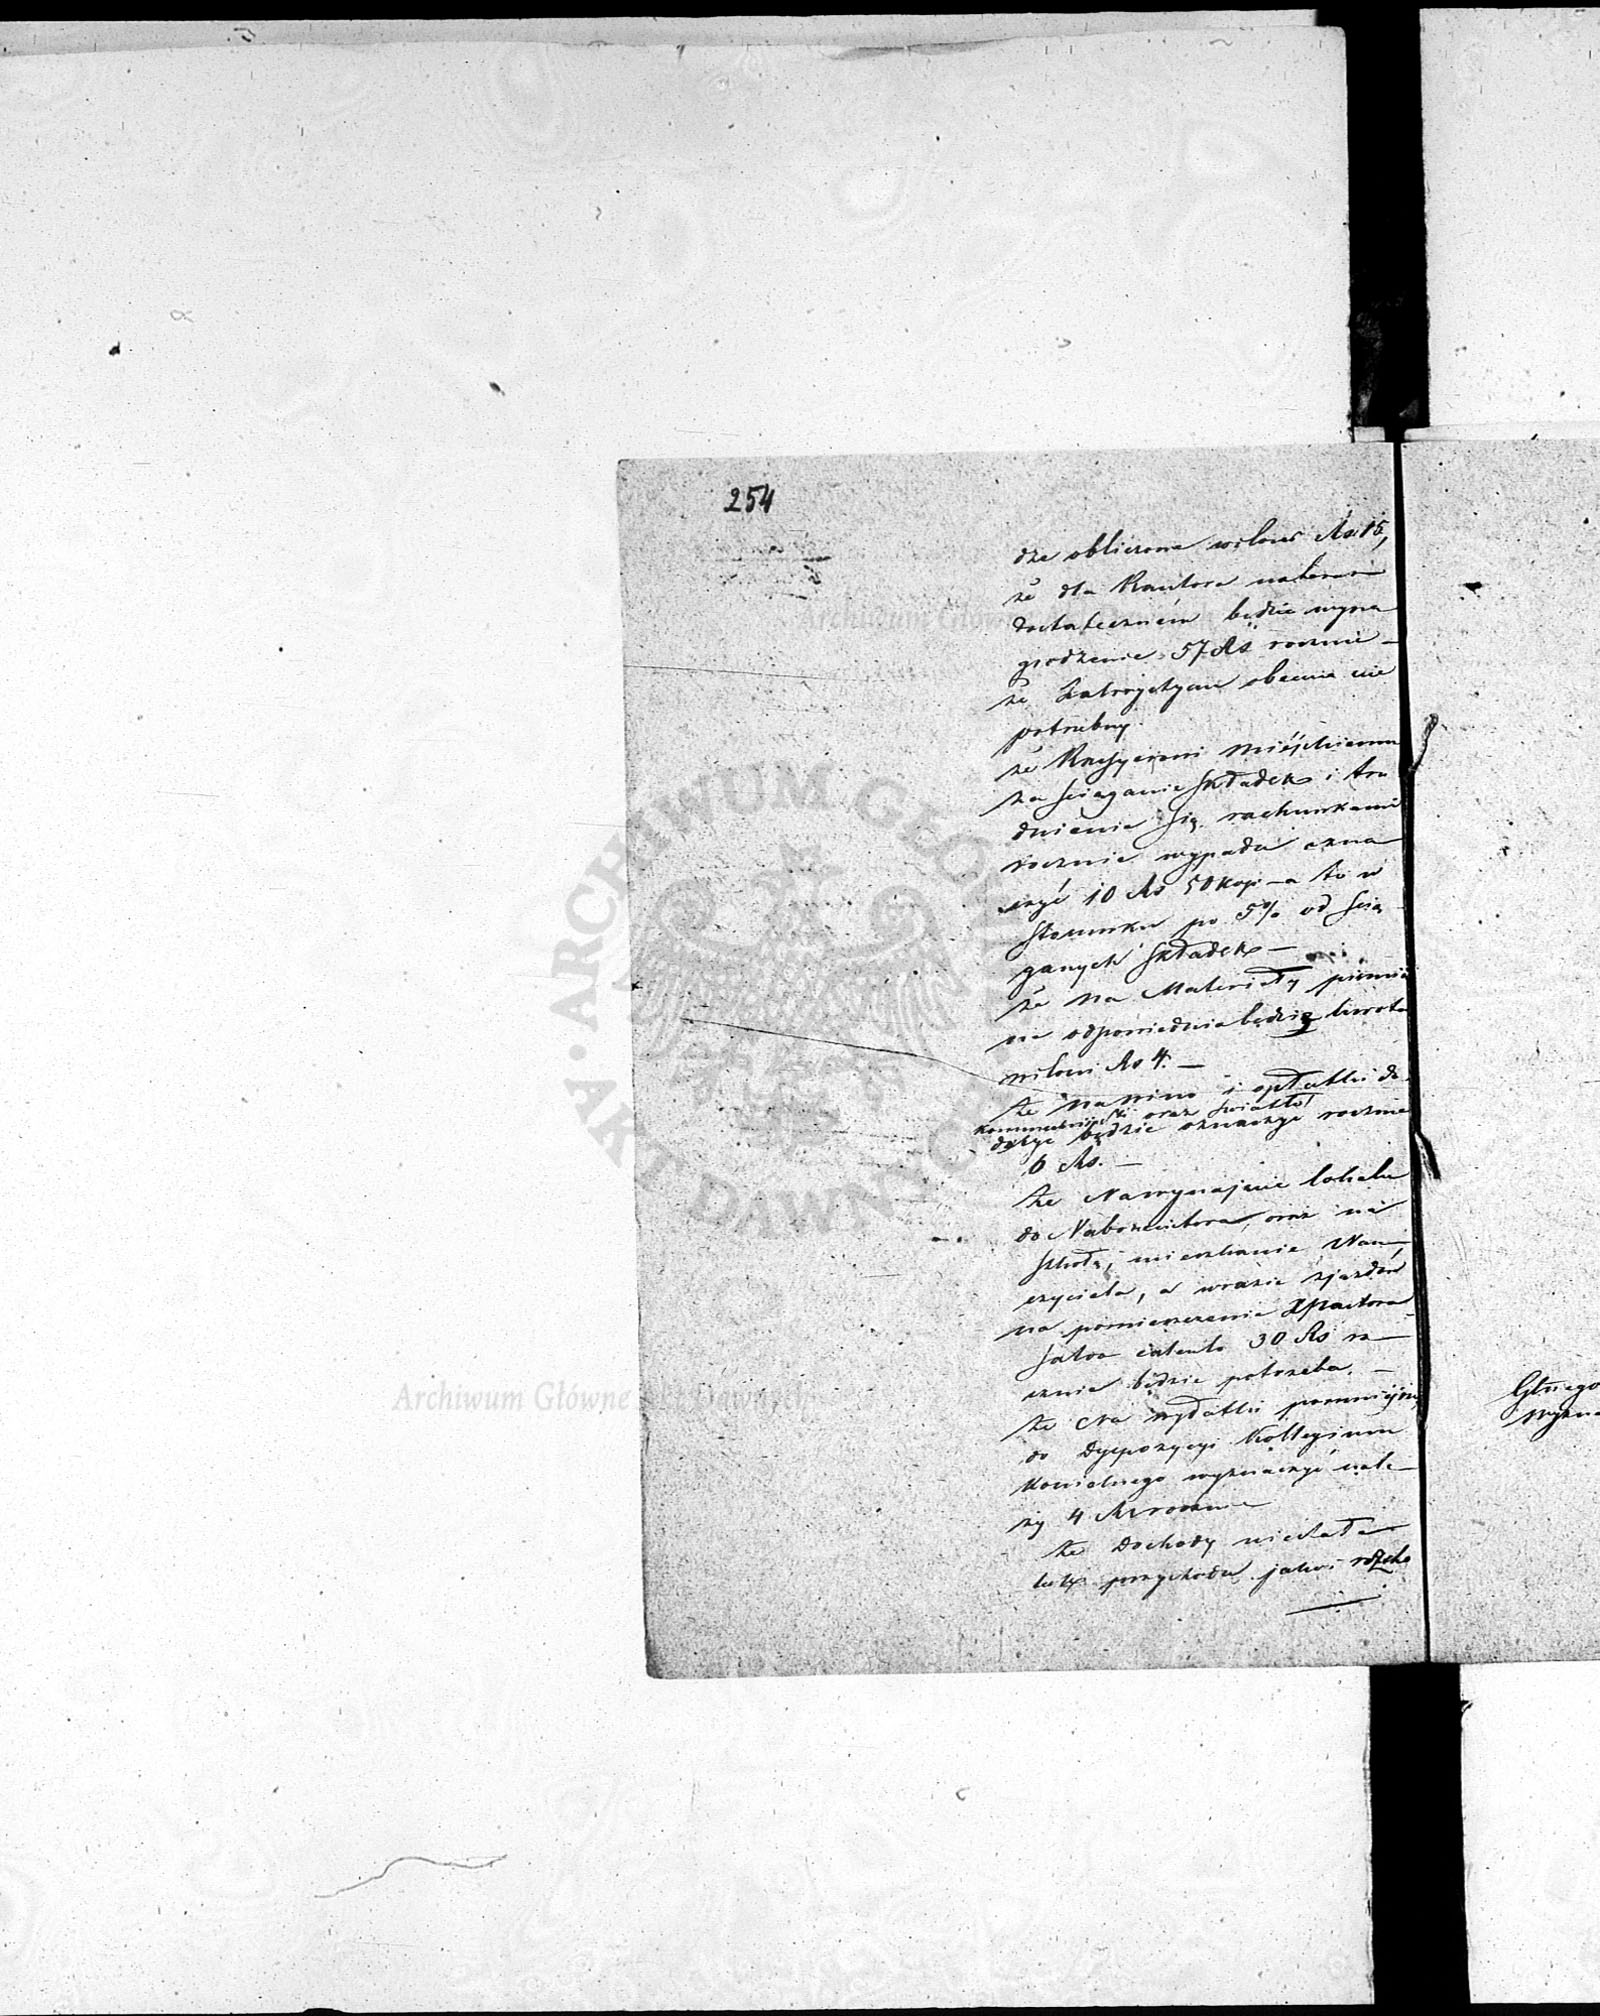 254
dze obliczona w ilości Rs. 15,
że dla Kantora nateraz
dostatecznem będzie wyna
grodzenie 57 Rs rocznie —
że Zakrystyan obecnie nie
potrzebny.
że Kassyerowi Miéjskiemu
za ściąganie składek i tru
dnienie się rachunkami
rocznie wypada ozna
czyć 10 Rs 50 kop — a to w
stosunku po 5% od ścią
ganych składek —
że na Materiały piśmie
ne odpowiednia będzie kwota
w ilości Rs 4. —
że na wino i opłatki do
Kommunii oraz światło
dosyć będzie oznaczyć rocznie
6 Rs. —
że Na wynajęcie lokalu
do Nabożeństwa, oraz na
szkołę, mieszkanie Nau
czyciela, a w razie zjazdów
na pomieszczenie Pastora
30 Rs ro
cznie będzie potrzeba. —
że Na wydatki pomniejsze
do dyspozycyi Kollegium
Kościelnego wyznaczyć nale
ży 4 Rs rocznie
że Dochody niestałe
tak przychodu jakoi rozcho
Głnego
Wyzna
Archiwum Główne Akt Dawnych
ARCHIWUM GŁÓWNE · AKT DAWNYCH ·
Archiwum Główne Akt Dawnych